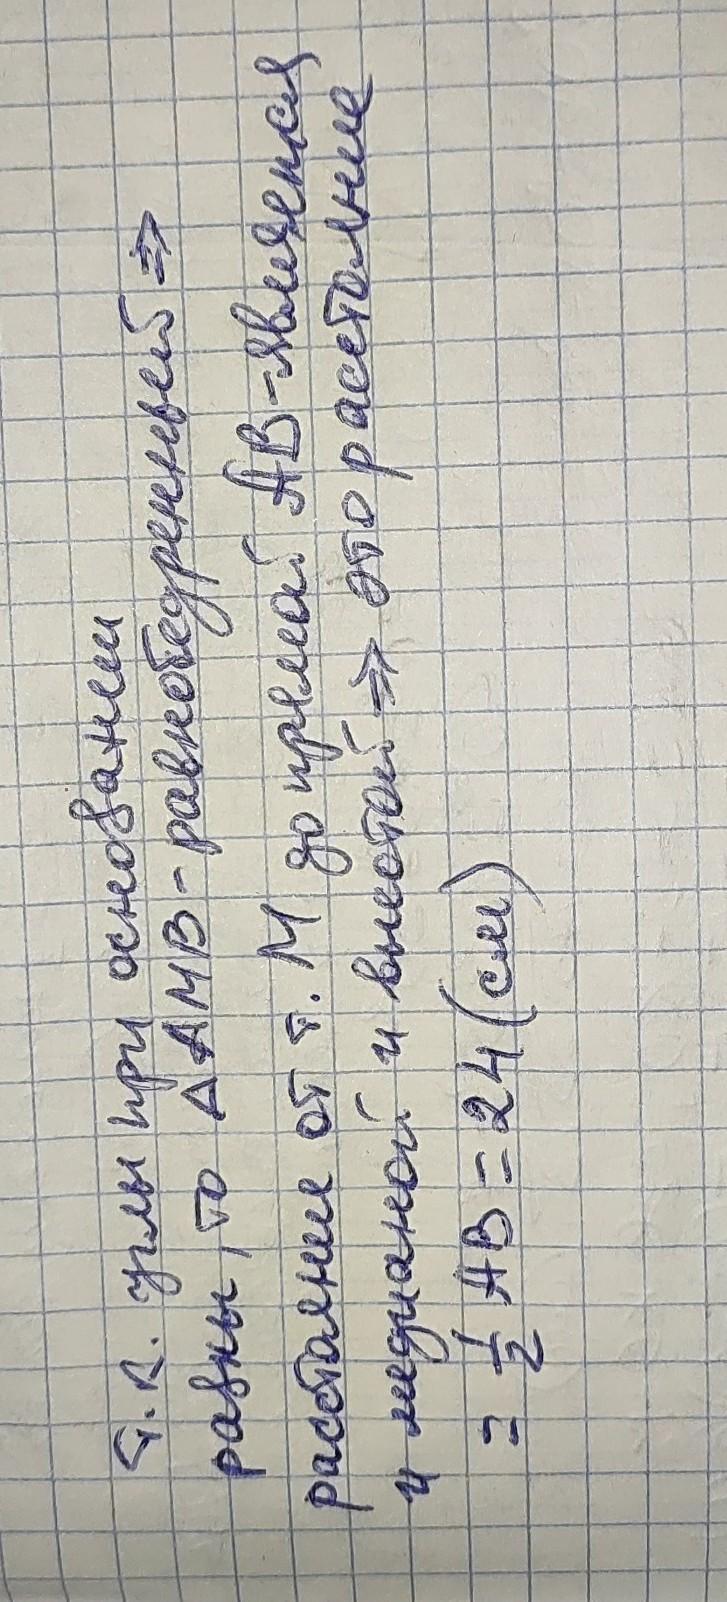 Т.к. углы при основании
равны, то ΔАМВ - равнобедренный ⇒
расстояние от т. М до прямой АВ - является
и медианой и высотой ⇒ это расстояние
= 1/2 АВ = 24 (см)